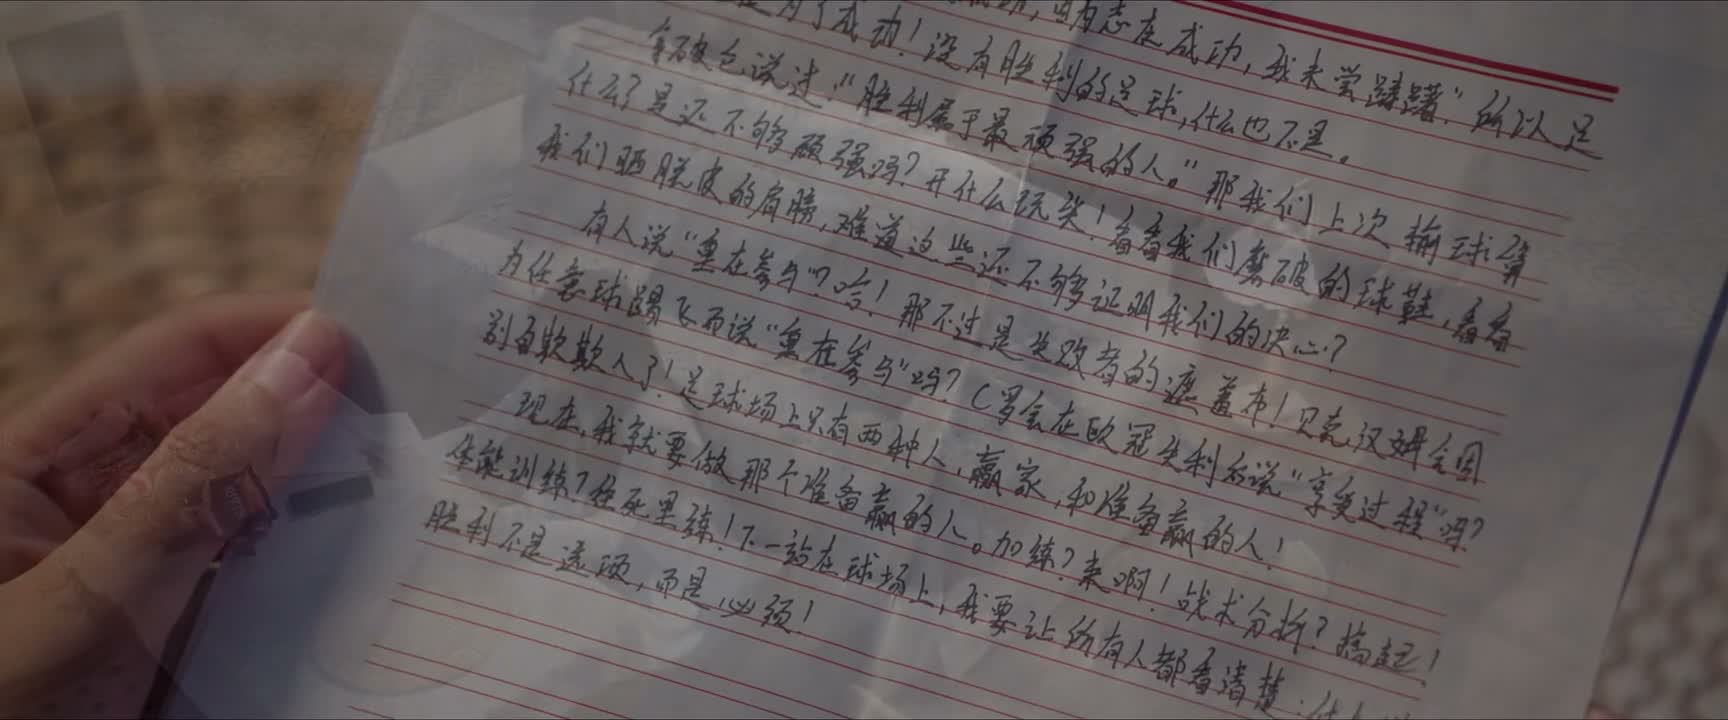 成功，我未尝踌躇。”所以足
为了成功！没有胜利的足球，什么也不是。
拿破仑说过：“胜利属于最顽强的人。”那我们上次输球算
什么？是还不够顽强吗？开什么玩笑！看看我们磨破的球鞋，看看
我们晒脱皮的肩膀，难道这些还不够证明我们的决心？
有人说“重在参与”？哈！那不过是失败者的遮羞布！贝克汉姆会因
为任意球踢飞而说“重在参与”吗？C罗会在欧冠失利后说“享受过程”吗？
别自欺欺人了！足球场上只有两种人，赢家，和准备赢的人！
现在，我就要做那个准备赢的人。加练？来啊！战术分析？搞起！
体能训练？往死里练！下一站在球场上，我要让所有人都看清楚：
胜利不是选项，而是必须！